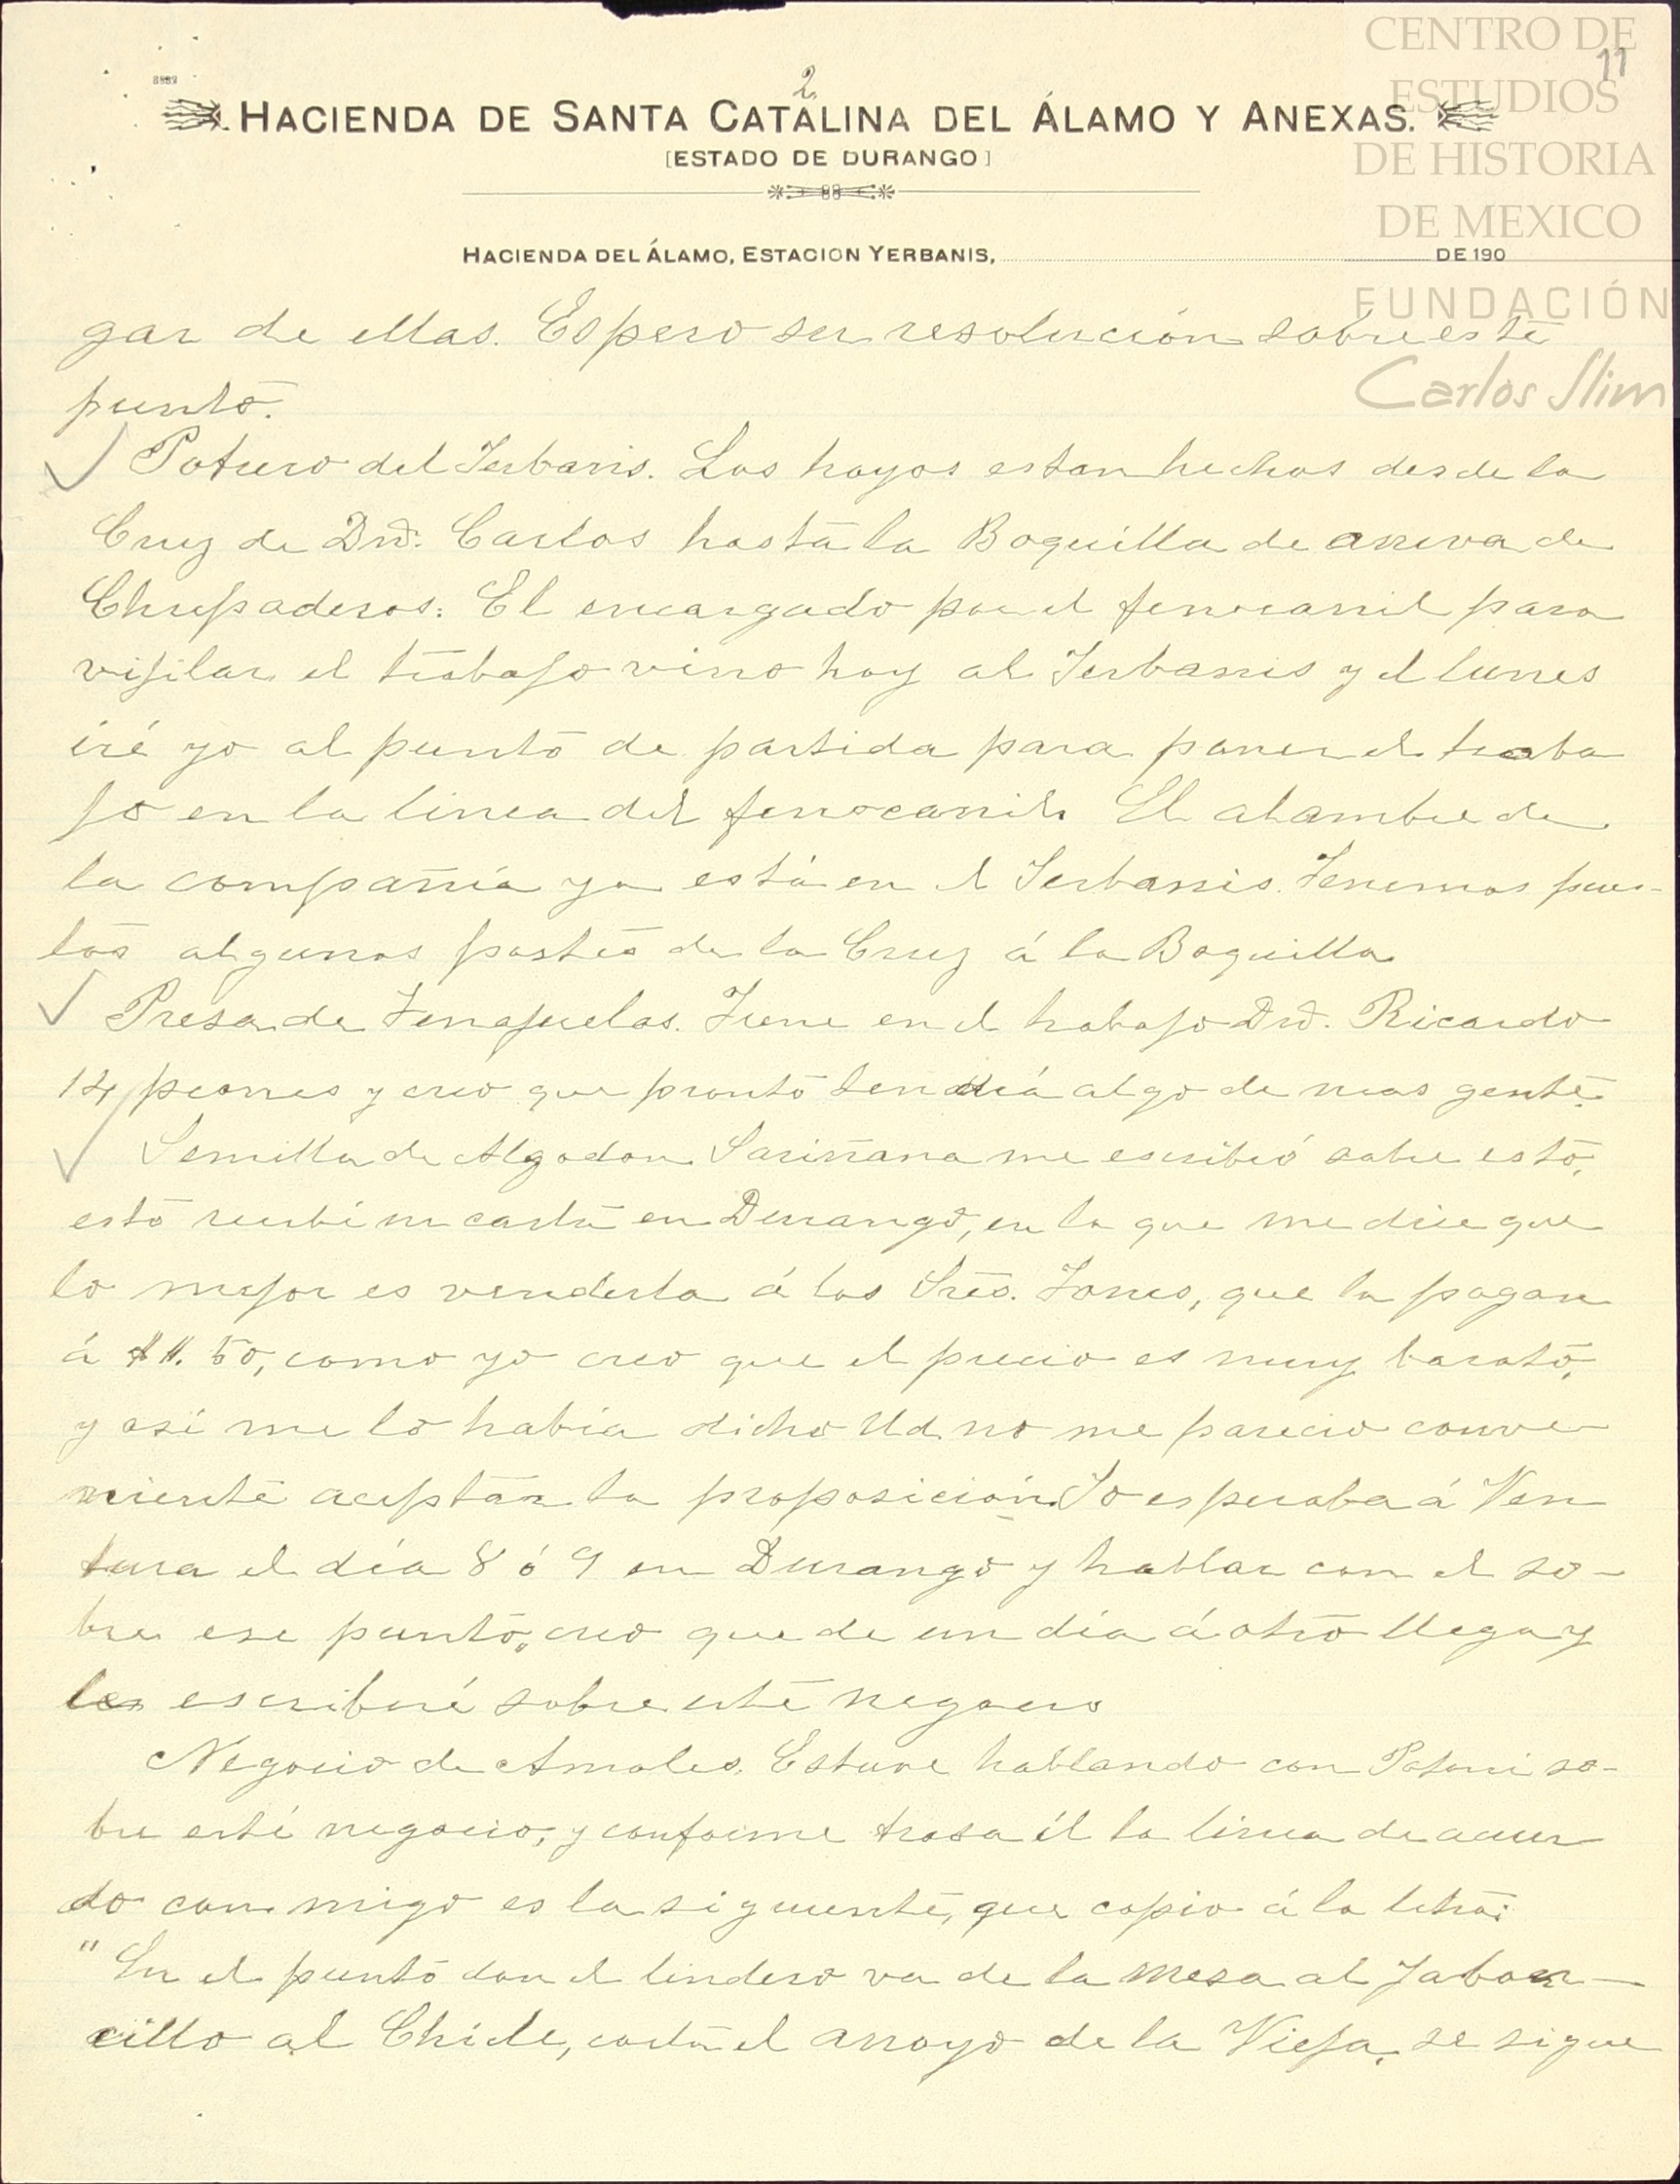 CENTRO DE
ESTUDIOS
DE HISTORIA
DE MEXICO
FUNDACIÓN
Carlos Slim
11
2.
HACIENDA DE SANTA CATALINA DEL ÁLAMO Y ANEXAS.
[ESTADO DE DURANGO]
HACIENDA DEL ÁLAMO, ESTACION YERBANIS, DE 190
gar de ellas. Espero su resolución sobre este
punto.
Potrero del Yerbanis. Los hoyos estan hechos desde la
Cruz de Dn. Carlos hasta la Boquilla de arriva de
Chupaderos. El encargado por el ferrocarril para
vijilar el trabajo vino hoy al Yerbanis y el lunes
iré yo al punto de partida para poner el traba
jo en la linea del ferrocarril. El alambre de
la compañía ya está en el Yerbanis. Tenemos pues-
tos algunos postes de la Cruz á la Boquilla
Presa de Tenajuelas. Tiene en el trabajo Dn. Ricardo
14 peones y creo que pronto tendrá algo de mas gente.
Semilla de Algodon. Sariñana me escribió sobre esto,
esto recibí su carta en Durango, en la que me dice que
lo mejor es venderla á los Sres. Jones, que la pagan
á $11.50, como yo creo que el precio es muy barato,
y asi me lo había dicho Ud. no me parecio conve
niente aceptar la proposición. Yo esperaba á Ven
tura el día 8 ó 9 en Durango y hablar con el so-
bre ese punto, creo que de un día á otro llega y
les escribiré sobre este negocio
Negocio de Amoles. Estuve hablando con Patoni so-
bre este negocio, y conforme trasa él la linea de acuer
do con migo es la siguiente, que copio á la letra:
"En el punto don el lindero va de la Mesa al Jabon-
cillo al Chile, corta el arroyo de la Vieja, se sigue